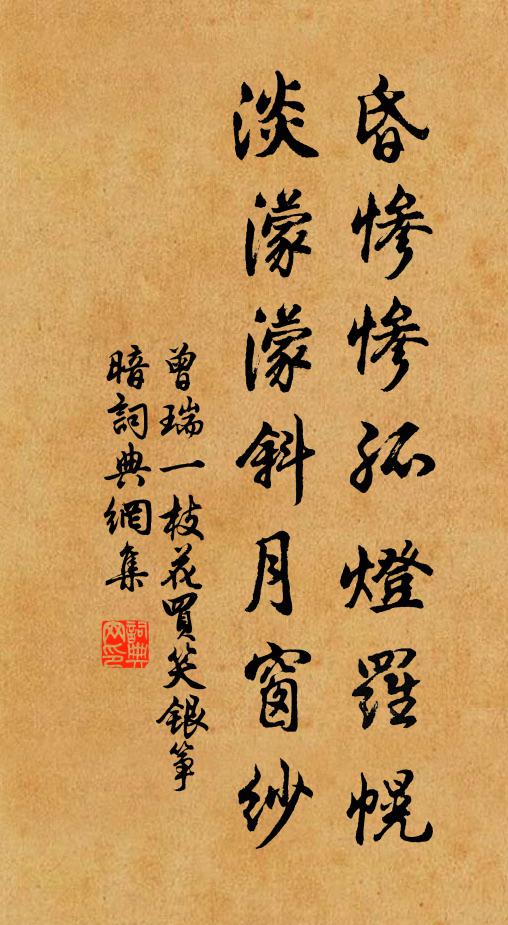 昏慘慘孤燈羅幌
淡濛濛斜月窗紗
曾瑞一枝花買笑銀箏
暗詞典網集
詞典
网印